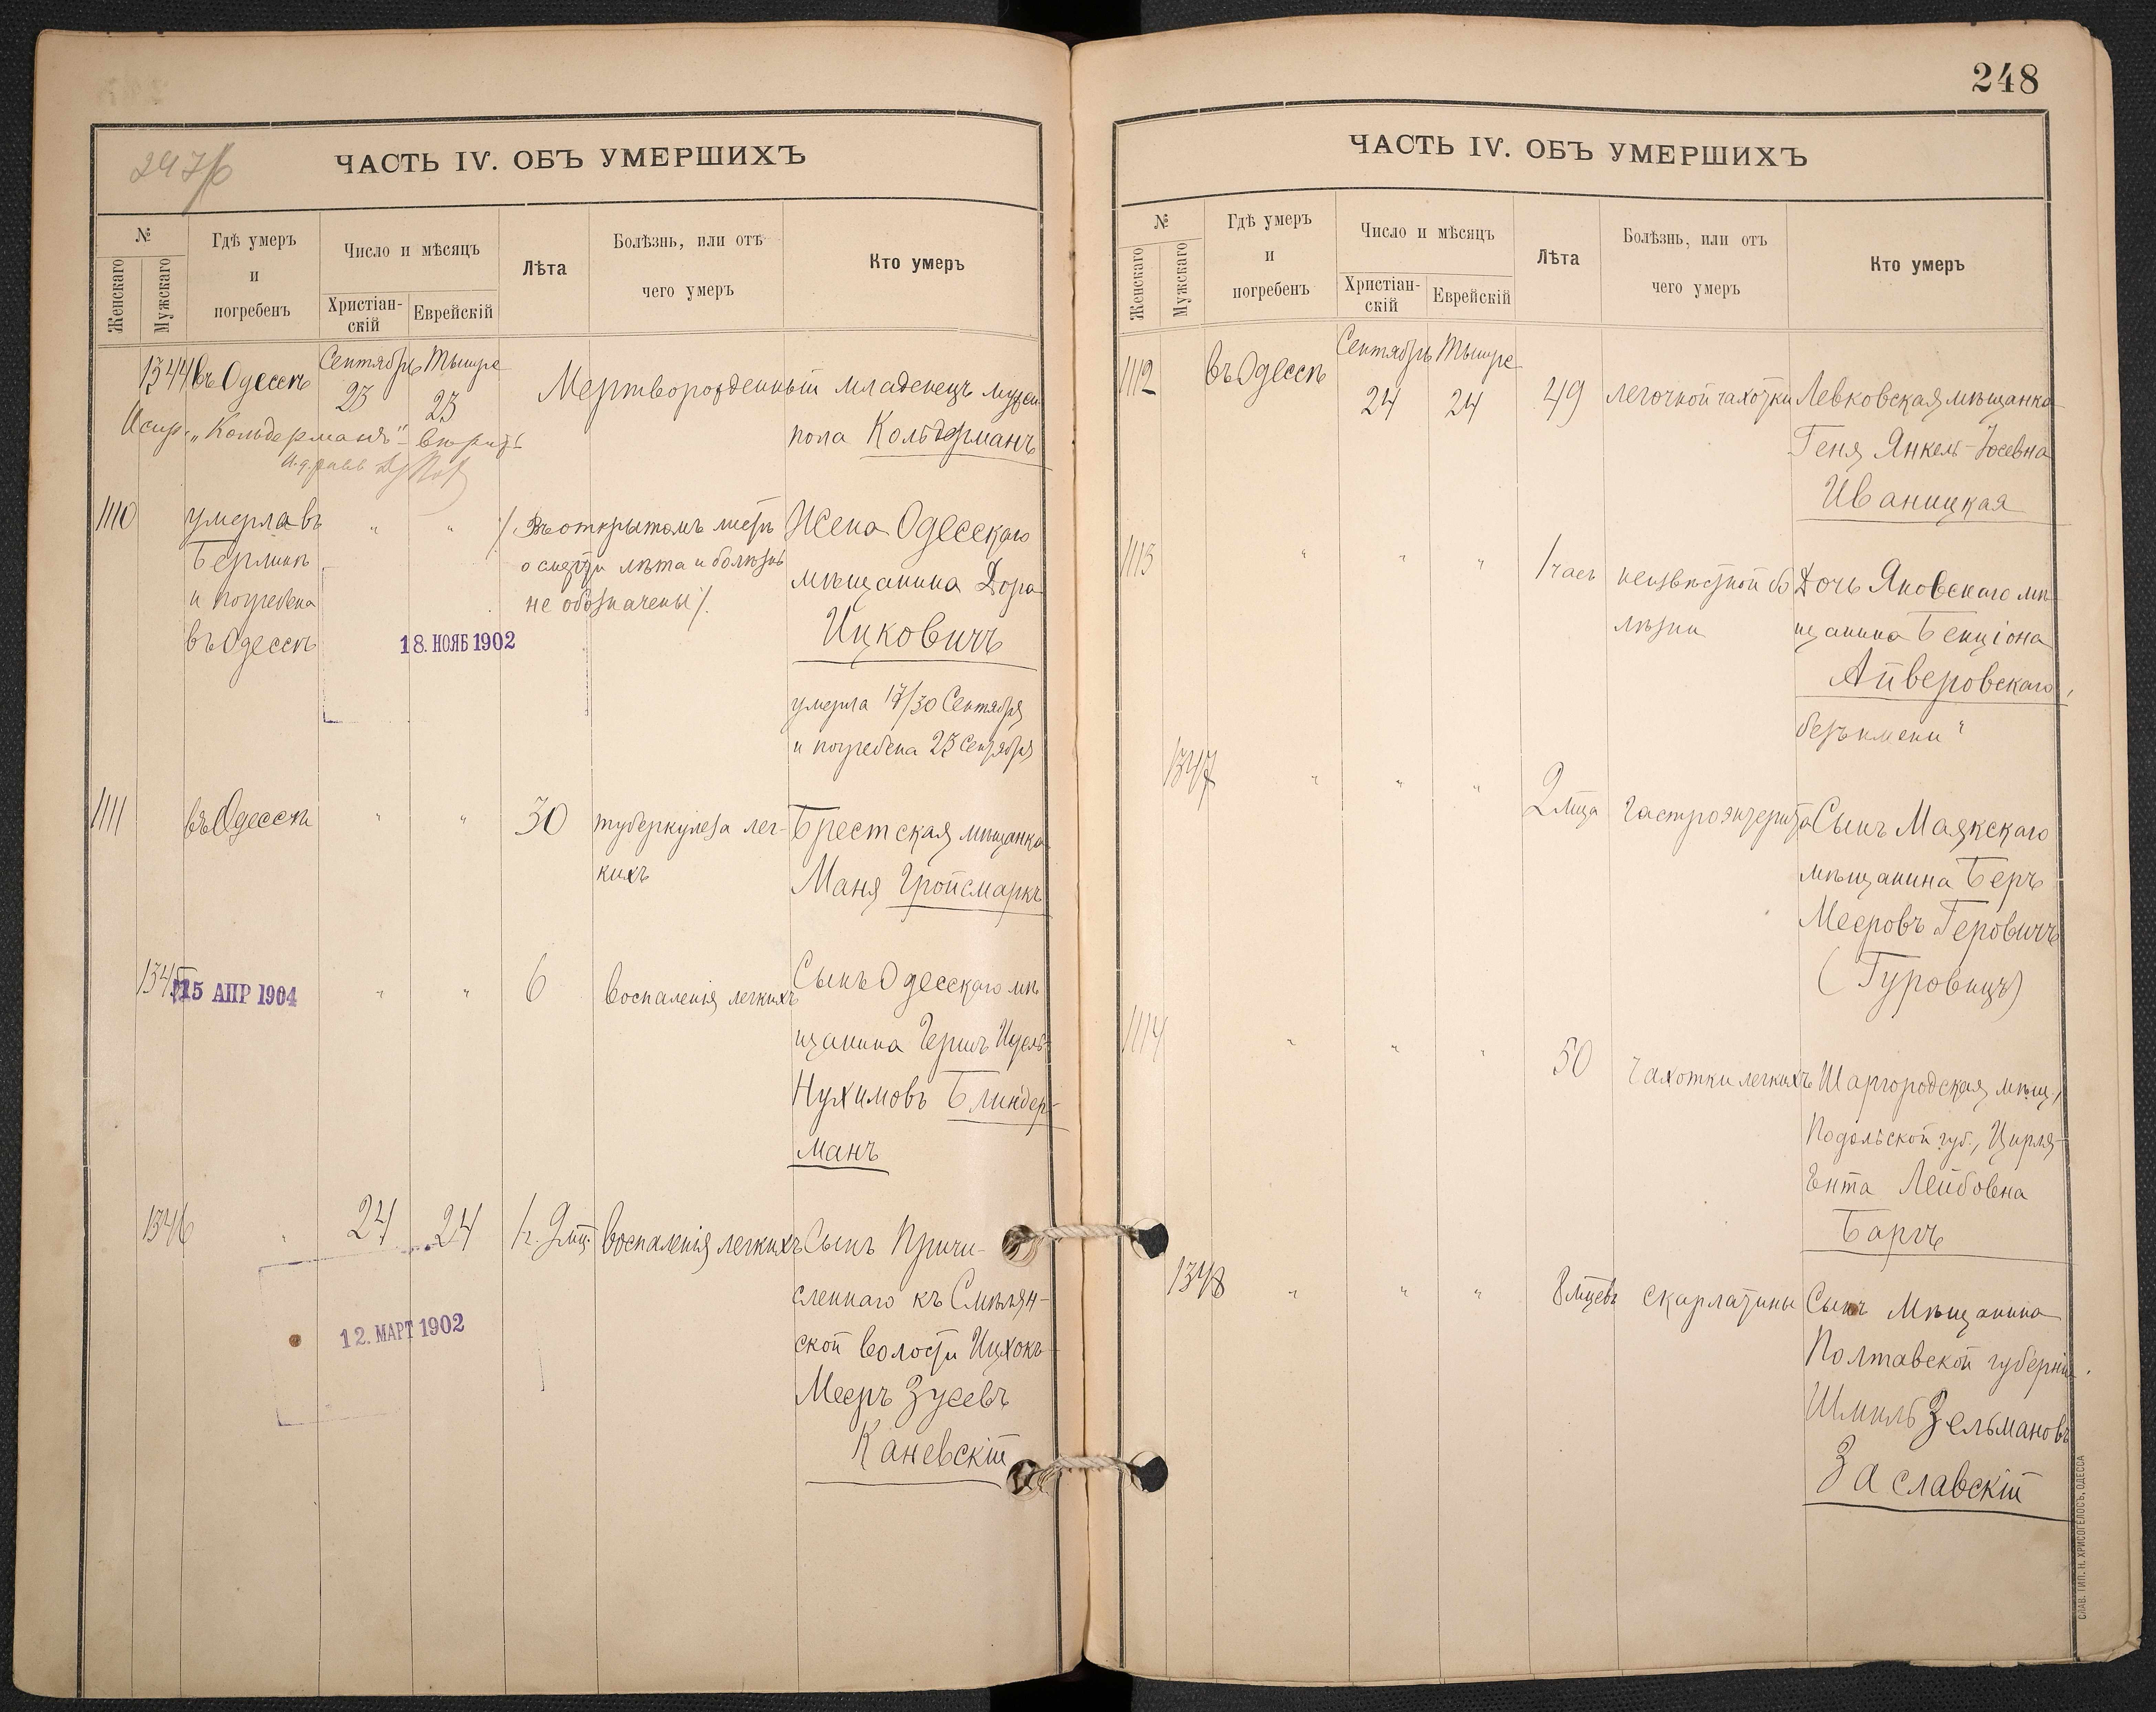 248
ЧАСТЬ IV. ОБЪ УМЕРШИХЪ
№
Женскаго
Мужскаго
Гдѣ умеръ
и
погребенъ
Число и мѣсяцъ
Христіан-
скій
Еврейскій
Лѣта
Болѣзнь, или отъ
чего умеръ
Кто умеръ
1344 въ Одессѣ
Сентябрь Тышре
23 23
Мертворожденный младенецъ мужск.
пола Кольдерманъ
Испр. „Кольдерманъ"
1110
умерла въ
Берлинѣ
и погребена
въ Одессѣ
" "
/. Въ открытомъ листѣ
о смерти лѣта и болѣзнь
не обозначены /.
18. НОЯБ 1902
Жена Одесскаго
мѣщанина Дора
Ицковичъ
умерла 17/30 Сентября
и погребена 23 Сентября
1111 въ Одессѣ " " 30
туберкулеза лег-
кихъ
Брестская мѣщанка
Маня Гройсмаркъ
1345
15 АПР 1904
" " 6 воспаленія легкихъ
Сынъ Одесскаго мѣ
щанина Герш
Нухимовъ Блиндер-
манъ
1346 " 24 24 1 г. 9 мц. воспаленія легкихъ
12. МАРТ 1902
Сынъ Причи-
сленнаго къ Смѣлян-
ской волости Ицхокъ-
Мееръ Зусевъ
Каневскій
ЧАСТЬ IV. ОБЪ УМЕРШИХЪ
№
Женскаго
Мужскаго
Гдѣ умеръ
и
погребенъ
Число и мѣсяцъ
Христіан-
скій
Еврейскій
Лѣта
Болѣзнь, или отъ
чего умеръ
Кто умеръ
1112 въ Одессѣ
Сентябрь Тышре
24 24
49 легочной чахотки
Левковская мѣщанка
Геня Янкель-Іосевна
Иваницкая
1113 " " " 1 часъ
неизвѣстной бо
лѣзни
Дочь Яновскаго мѣ
щанина Бенціона
Айзеровскаго,
безъ имени "
1347 " " " 2 мца гастроэнтерита
Сынъ Маякскаго
мѣщанина Беръ
Мееровъ Геровичъ
(Гуровицъ)
1114 " " " 50 чахотки легкихъ
Шаргородская мѣщ,
Подольской губ., Цирля-
Ента Лейбовна
Баргъ
1348 " " " 8 мцевъ скарлатины
Сынъ Мѣщанина
Полтавской губерніи
Шмиль Зельмановъ
Заславскій
СЛАВ. ТИП. Н. ХРИСОГЕЛОСЪ, ОДЕССА